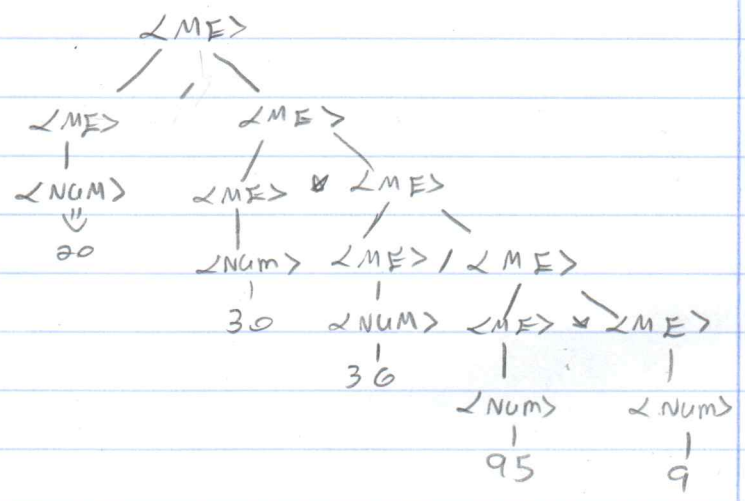 <ME>
<ME> / <ME>
<NUM> <ME> * <ME>
20 <Num> <ME> / <ME>
30 <NUM> <ME> * <ME>
36 <Num> <Num>
95 9